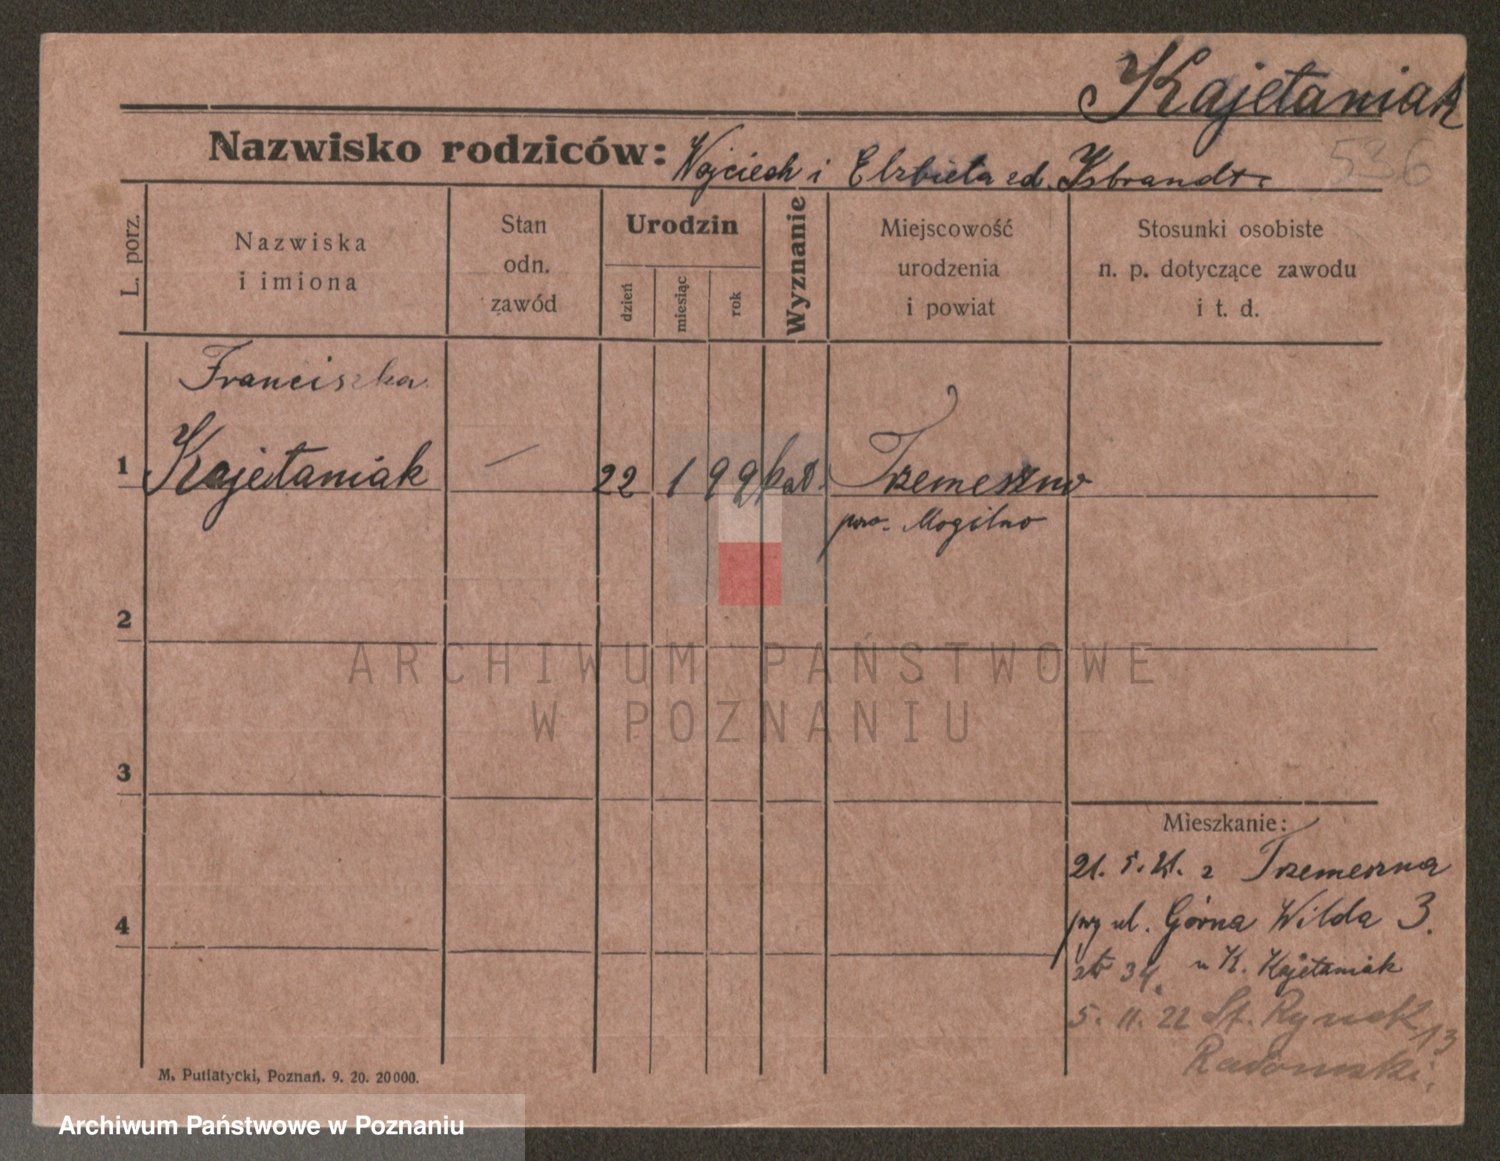 Kajetaniak
526
Nazwisko rodziców: Wojciech i Elżbieta zd. Isbrandt.
L. porz.
Nazwiska
i imiona
Stan
odn.
zawód
Urodzin
dzień
miesiąc
rok
Wyznanie
Miejscowość
urodzenia
i powiat
Stosunki osobiste
n. p. dotyczące zawodu
i t. d.
Franciszka
1 Kajetaniak — 22 1 99 kat. Trzemeszno
pow. Mogilno
2
ARCHIWUM PAŃSTWOWE
W POZNANIU
3
4
Mieszkanie:
21. 5. 21. z Trzemeszna
przy ul. Górna Wilda 3.
34. u K. Kajetaniak
5. 11. 22 St. Rynek 13
Radomski.
M. Putiatycki, Poznań. 9. 20. 20000.
Archiwum Państwowe w Poznaniu